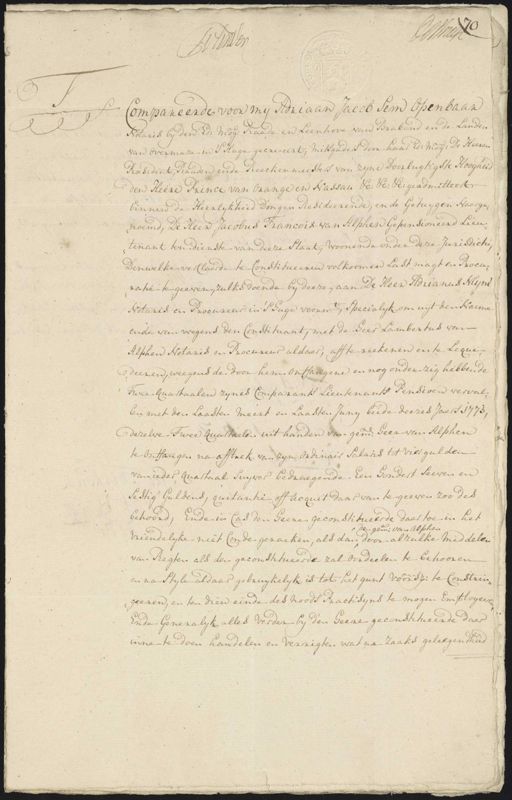 70
Compareerde voor my Adriaan Jacob Sem Openbaar
Notaris by den Ed: Mog: Raade en Leenhove van Braband en de Landen
van overmaze in S'Hage geresideert, mitsgaders den
President, Raaden ende Reeckenmeesters van zyne Doorlugtigste Hoogheid
den Heere Prince van Orange en Nassau &c &c &c geadmitteert
binnen de Heerlykheid Dongen Resideerende, en de Getuygen Naerge
noemd, De Heer Jacobus Francois van Alphen Gepensioneerd Lieu
tenant ten dienste van deeze Staat, Woonende onder deze Jurisdictie,
Denwelke verklaarde te Constitueeren volkomen Last magt en Procu
ratie te geeven, zulx doende by deeze, aan De Heer Adrianus Kluyt
Notaris en Procureur in S'Hage voornt, Specialyk om uyt den Naeme
ende van wegens den Constituant, met de Heer Lambertus van
Alphen Notaris en Procureur aldaar, afte reekenen en te Lique
deeren, weegens de door hem Ontfangene en nog onder zig hebbende
Twee Quartaalen zynes Comparants Lieutenants Pensioen verval
len met den Laasten Meert en Laasten Juny beide dezes Jaars 1773,
dezelve Twee Quartaelen uit handen van gem: Heer van Alphen
te Ontfangen na aftrek van zyn Ordinair Salaris tot vier gulden
van ieder Quartaal Suyver bedraagende Een Hondert Seeven en
Sestig Guldens, quitantie off acquit daar van te geeven zoo des
behoord, Ende in Cas den Heere geconstitueerde daer toe in het
vriendelyke niet Conde geraaken, als dan door alzulke Middelen
de gem: van Alphen
van Regten als den geconstitueerde zal Oordeelen te behooren
en na Style aldaar gebruykelyk is tot het gunt voorsz: te Constrin
geeren, en ten dien einde des noods Practisyns te mogen Employeeren
Ende Generalyk alles verder by den Heere geconstitueerde daar
inne te doen handelen en verrigten wat na zaaks geleegentheid